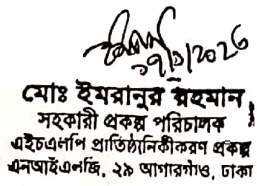 ১৭/১/২০২৬
মোঃ ইমরানুর রহমান
সহকারী প্রকল্প পরিচালক
এইচএলপি প্রাতিষ্ঠানিকীকরণ প্রকল্প
এনআইএলজি, ২৯ আগারগাঁও, ঢাকা